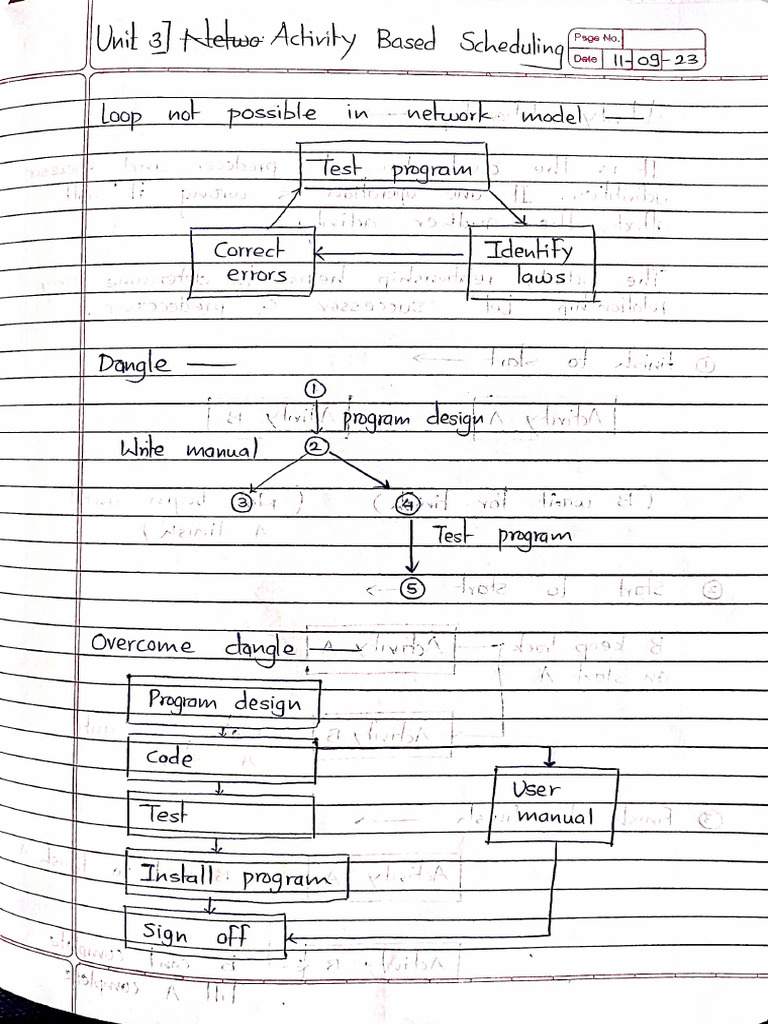 Unit 3] Netwo Activity Based Scheduling
Page No.
Date 11-09-23
Loop not possible in network model —
Test program
Correct errors
Identify laws
Dangle —
1
program design
Write manual 2
3 4
Test program
5
Overcome dangle —
Program design
Code
User
manual
Test
Install program
Sign off